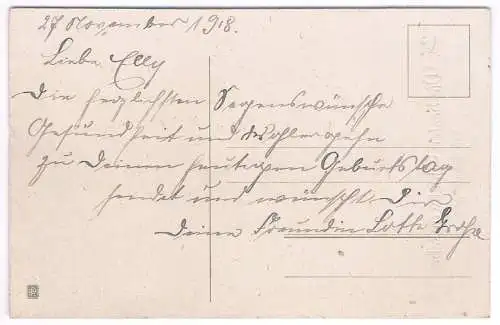 27 November 1918.
Liebe Elly
Die herzlichsten Segenswünsche
Gesundheit und Wohlergehn
zu Deinem heutigen Geburtstag
sendet und wünscht Dir
Deine Freundin Lotte